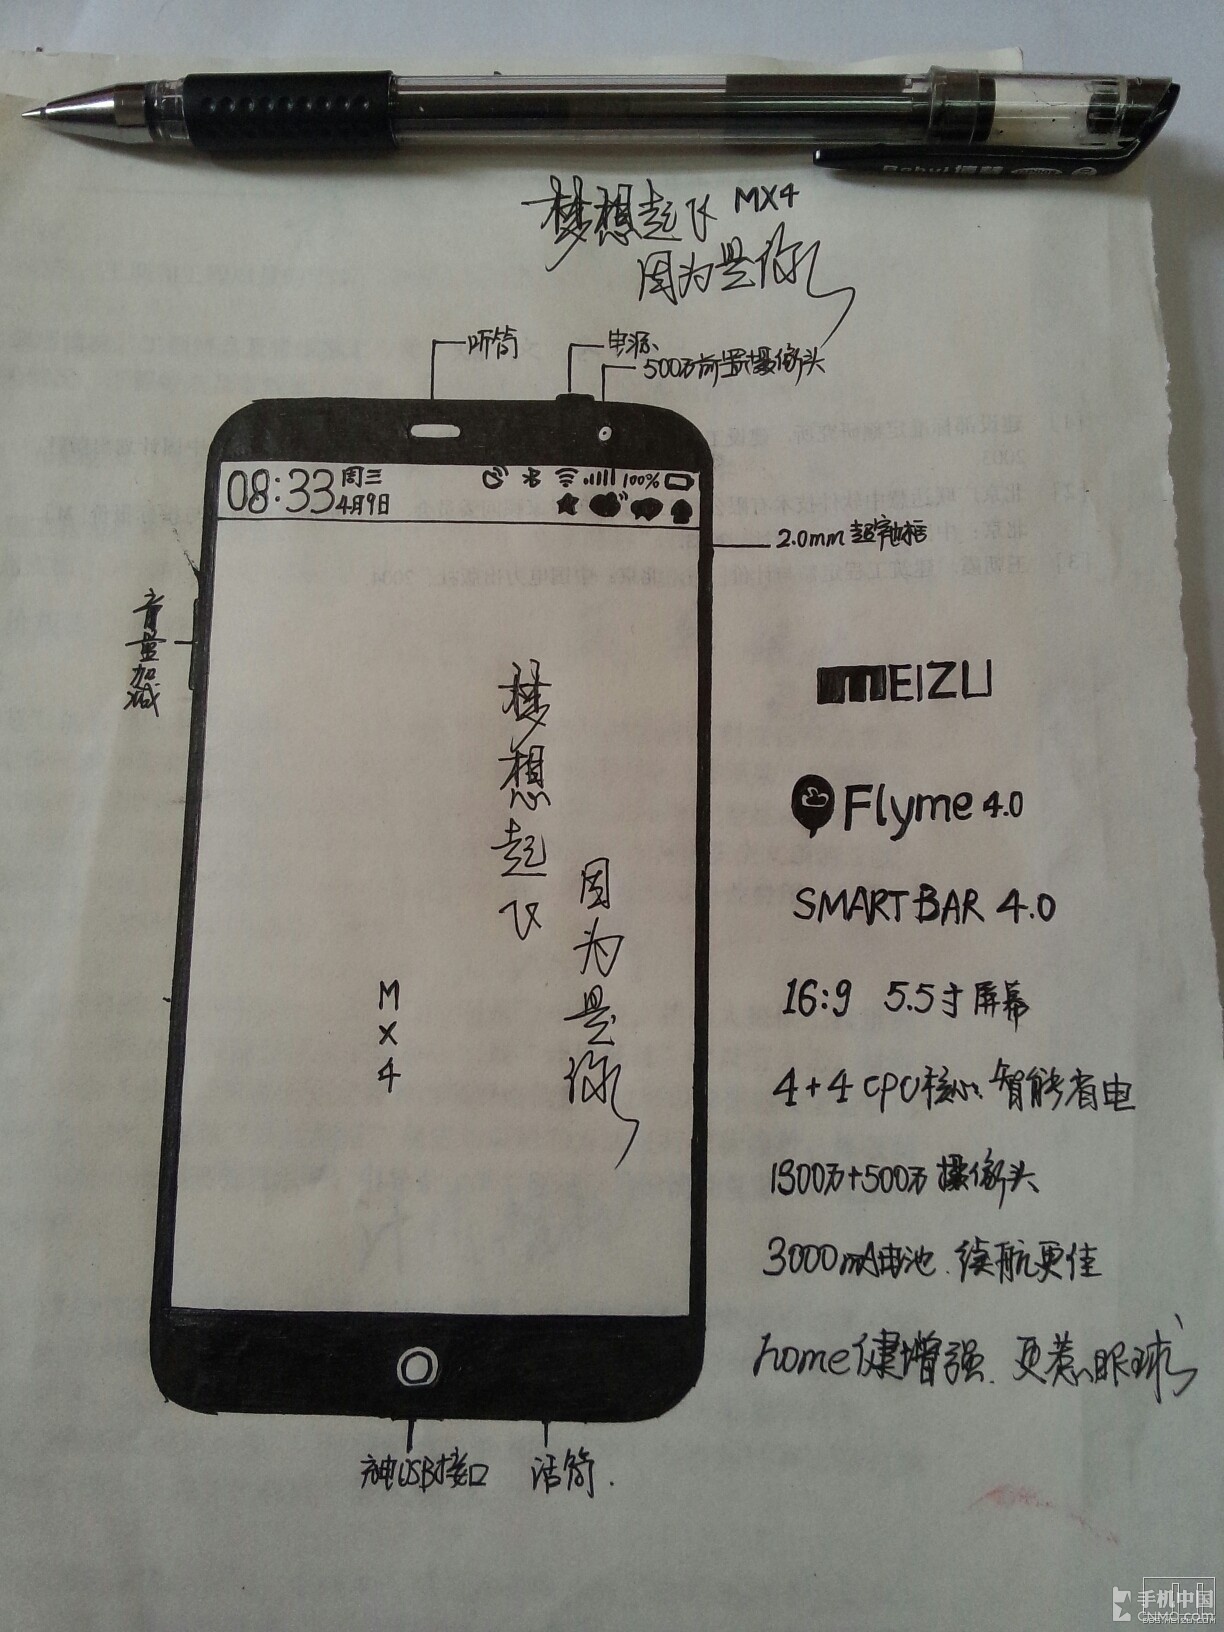 梦想起飞 MX4
因为是你
听筒
电源
500万前置摄像头
08:33
周三
4月9日
100%
2.0mm 超窄边框
音量加减
梦想起飞
因为是你
MX4
MEIZU
Flyme 4.0
SMART BAR 4.0
16:9 5.5寸屏幕
4+4 CPU核心.智能省电
1300万+500万摄像头
3000mA电池.续航更佳
home健增强.更惹眼球
充电USB接口
话筒.
手机中国
CNMO.COM